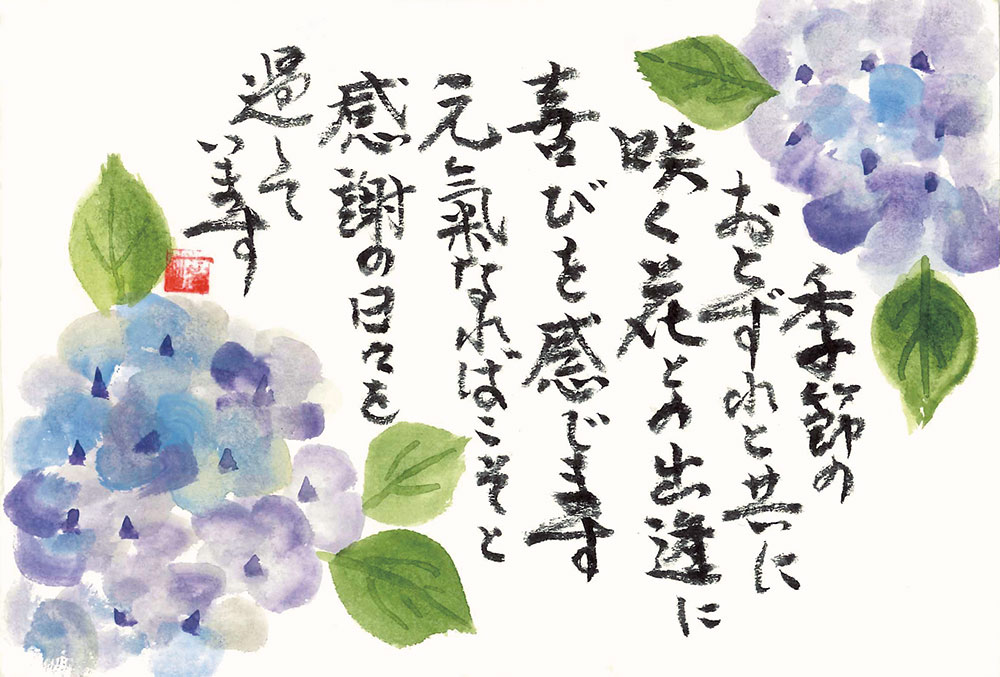 季節の
おとずれと共に
咲く花との出逢に
喜びを感じます
元氣なればこそと
感謝の日々を
過して
います